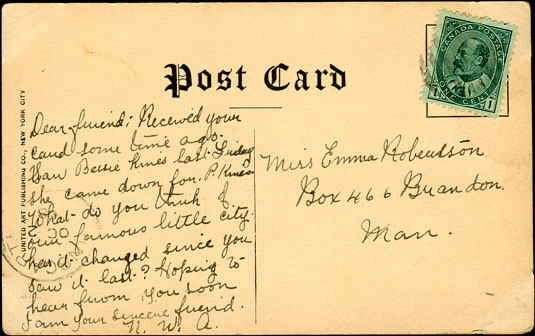 Post Card
CANADA POSTAGE
ONE CENT
1
UNITED ART PUBLISHING CO., NEW YORK CITY
Dear friend: Received your
card some time ago.
Bessie Hines last Friday
she came down for P. Hines.
What do you think of
our famous little city.
has it changed since you
saw it last? Hoping to
hear from you soon
I am your sincere friend.
N. W. A.
Miss Emma Robertson
Box 466 Brandon.
Man.